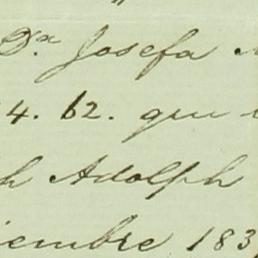 Dª Josefa
4. 62. que
h Adolph
iembre 183